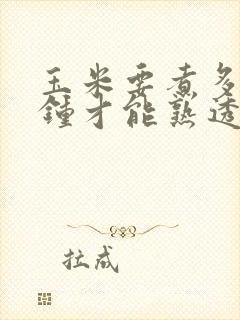 玉米要煮多
鍾才能熟透
拉成